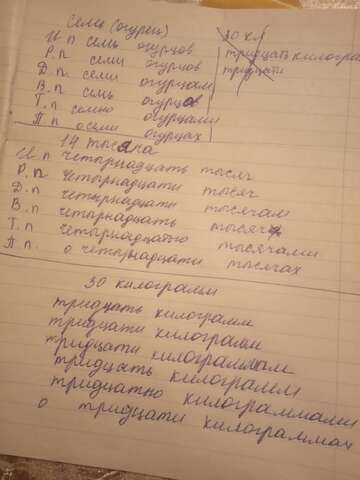 Семь (огурец)
И.п семь огурцов
Р.п семи огурцов
Д.п. семи огурцам
В.п семь огурцов
Т.п семью огурцами
П.п о семи огурцах
30 кл
тридцать килограм
тридцати
14 тысяча
И.п четырнадцать тысяч
Р.п. четырнадцати тысяч
Д.п четырнадцати тысячам
В.п четырнадцать тысяч
Т.п четырнадцатью тысячами
П.п. о четырнадцати тысячах
30 килограмм
тридцать килограмм
тридцати килограмм
тридцати килограммам
тридцать килограмм
тридцатью килограммами
о тридцати килограммах